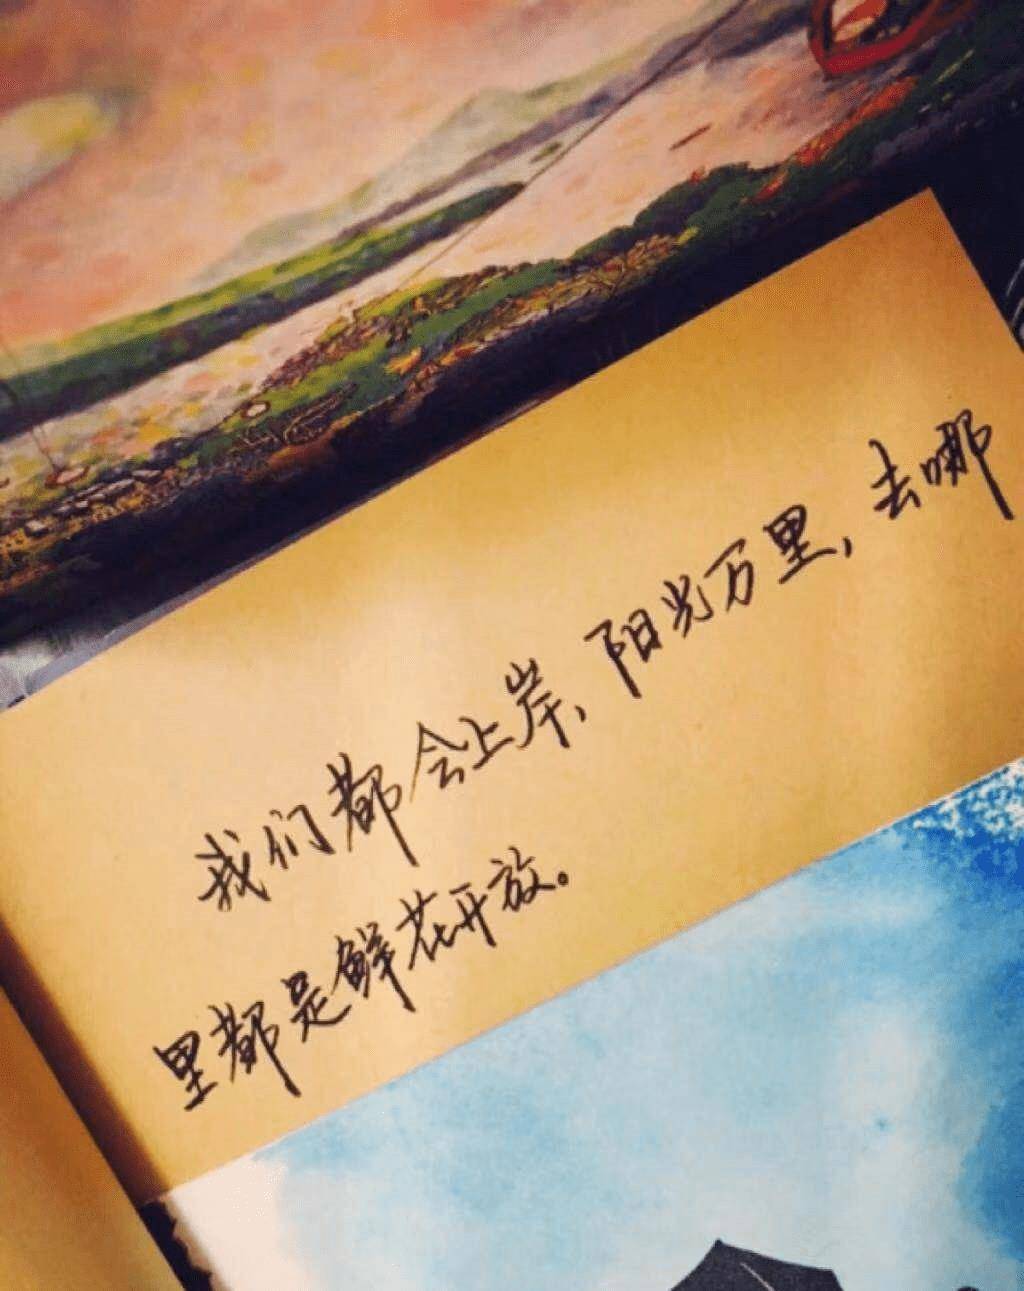 我们都会上岸，阳光万里，去哪
里都是鲜花开放。